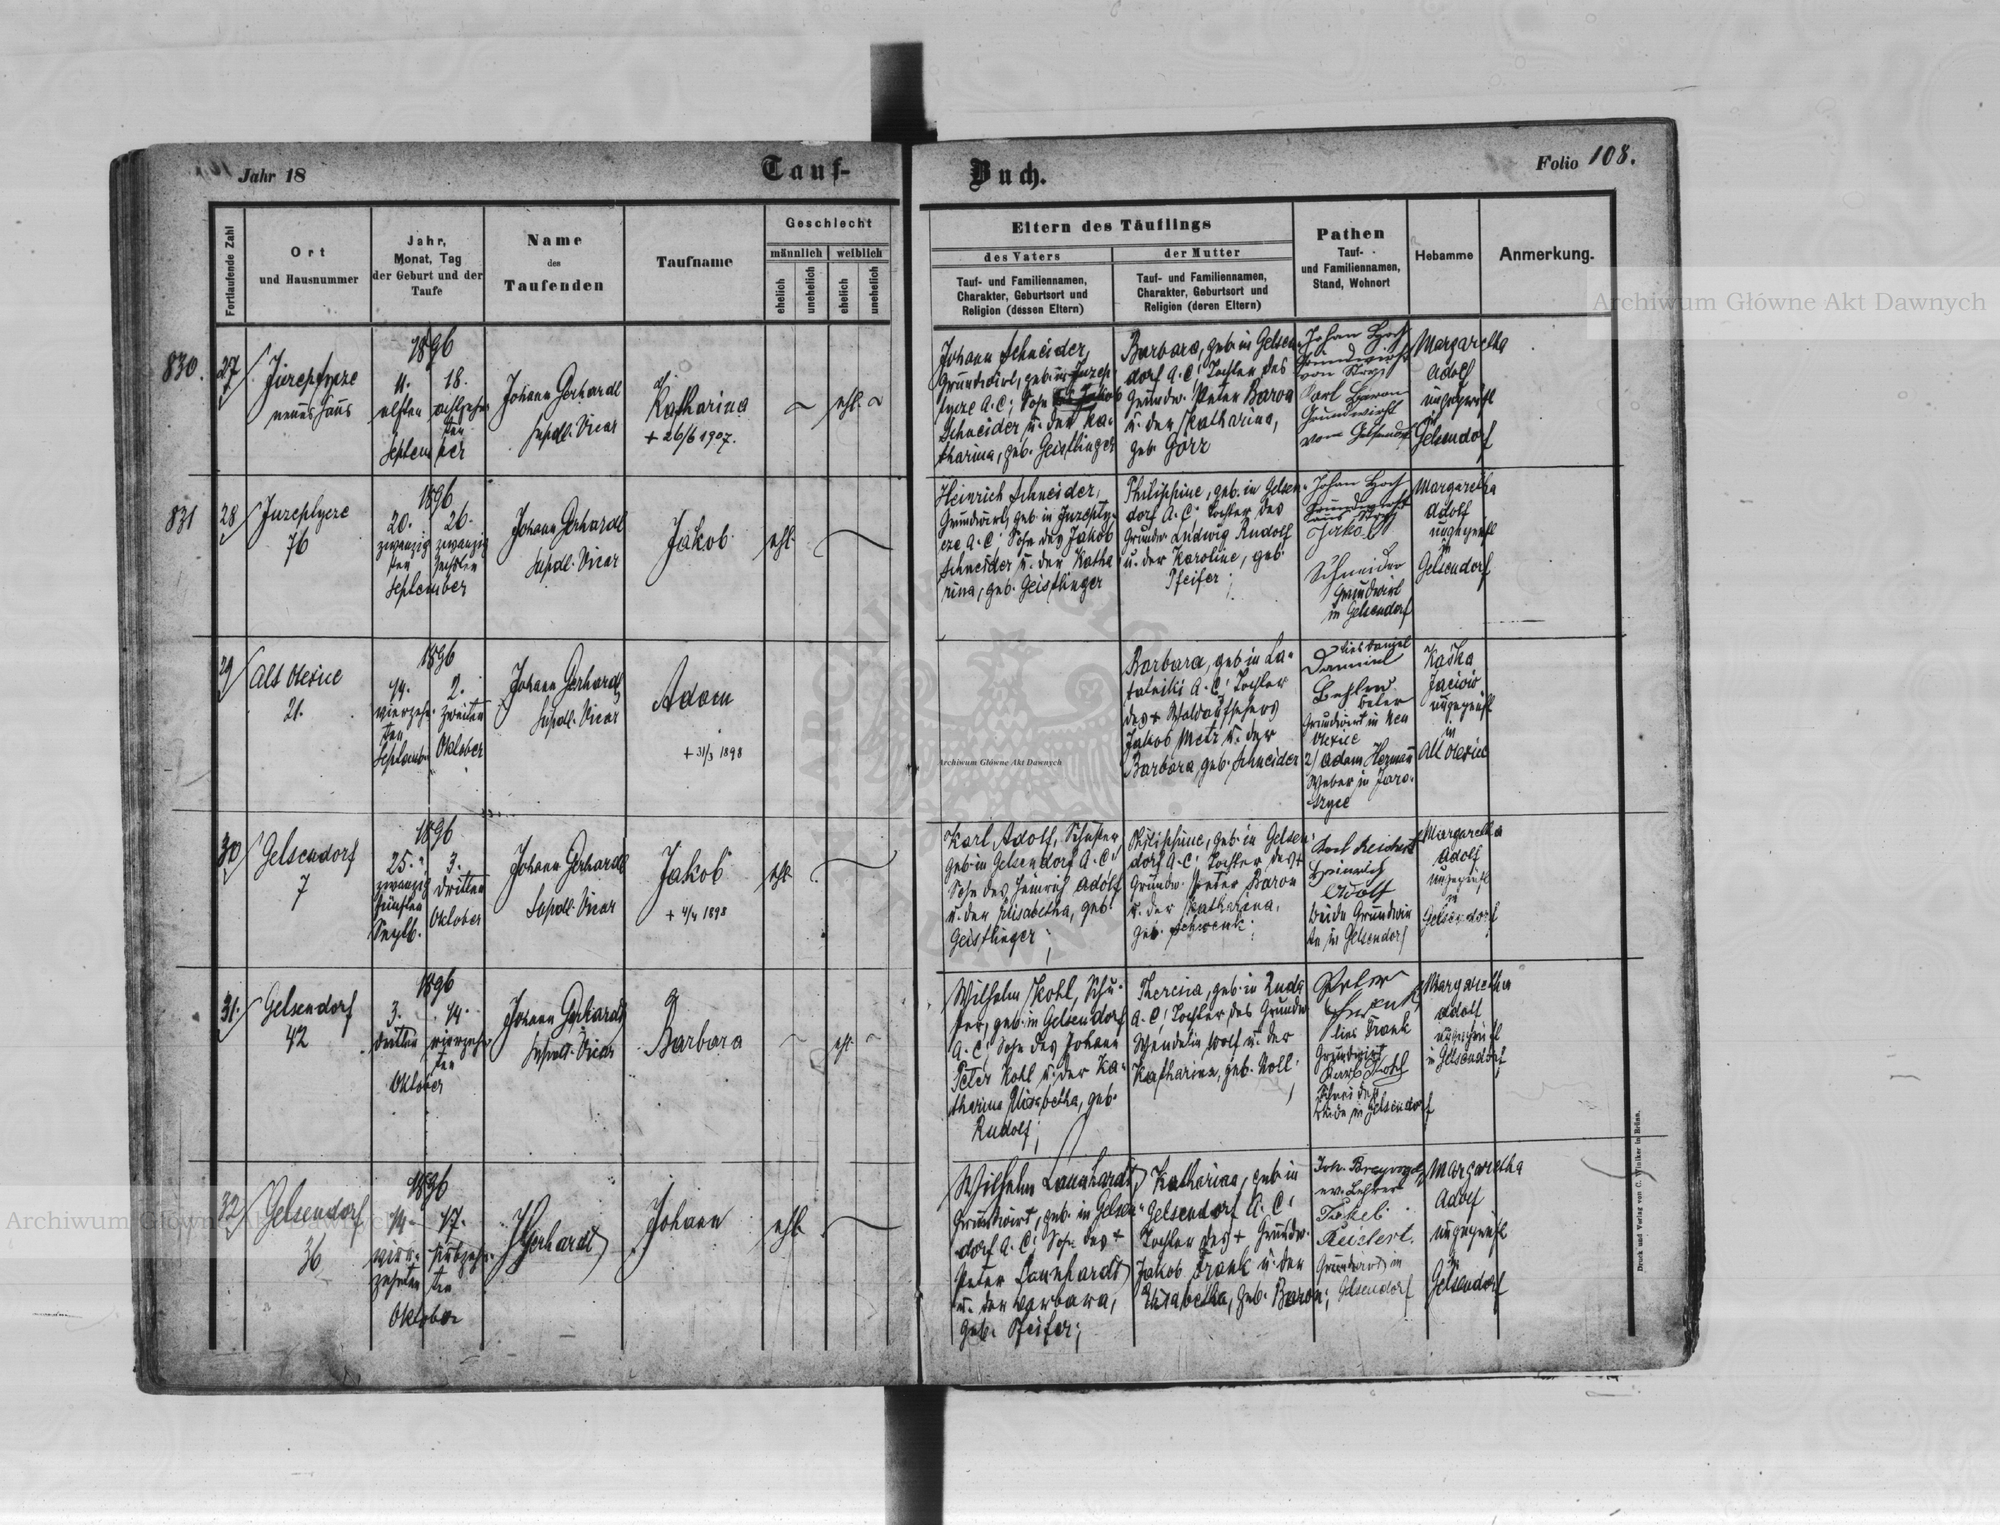 Jahr 18
Tauf-
Buch.
Folio 108.
Fortlaufende Zahl
Ort
und Hausnummer
Jahr,
Monat, Tag
der Geburt und der
Taufe
Name
des
Taufenden
Taufname
Geschlecht
männlich
weiblich
ehelich
unehelich
ehelich
unehelich
Eltern des Täuflings
des Vaters
der Mutter
Tauf- und Familiennamen,
Charakter, Geburtsort und
Religion (dessen Eltern)
Tauf- und Familiennamen,
Charakter, Geburtsort und
Religion (deren Eltern)
Pathen
Tauf-
und Familiennamen,
Stand, Wohnort
Hebamme
Anmerkung.
830.
27/
neues Haus
1896
11.
elften
18.
achtzehn
ten
September
Johann Gerhardt
Supdl. Vicar
Katharina
+ 26/6 1907.
ehl.
Johann Schneider,
Grundwirt, geb. in
A.C; Sohn Jakob
Schneider u. der Ka-
tharina, geb. Geistlinger
Barbara, geb. in Gelsen-
dorf A.C; Tochter des
Grundw. Peter Baron
u. der Katharina,
geb. Görz
Johan Hoch
Grundwirth
von Stryj
Karl Baron
Grundwirth
vom Gelsendorf
Margaretha
Adolf
ungeprüft
in
Gelsendorf
831
28/
76
1896
20.
zwanzig
sten
26.
zwanzig
sechsten
September
Johann Gerhardt
Supdl. Vicar
Jakob
ehl.
Heinrich Schneider,
Grundwirt, geb. in
A.C; Sohn des Jakob
Schneider u. der Katha
rina, geb. Geistlinger
Philippine, geb. in Gelsen-
dorf A.C; Tochter des
Grundw. Ludwig Rudolf
u. der Karoline, geb.
Pfeifer;
Johan Hoch
Grundwirth
aus Stryj
Jakob
Schneider
Grundwirt
in Gelsendorf
Margaretha
Adolf
ungeprüft
in
Gelsendorf
29/
Alt Olexice
21.
1896
14.
vierzehn-
ten
September
2.
zweiten
Oktober
Johann Gerhardt
Supdl. Vicar
Adam
+ 31/3 1898
Barbara, geb. in
A.C; Tochter
des + Waldaufsehers
Jakob Metz u. der
Barbara, geb. Schneider
lies Daniel
Daniel
Grundwirt in Neu
Olexice
2/ Adam Herman
Weber in
Kaśka
Jaciów
ungeprüft
in
Alt Olexice
30/
Gelsendorf
7
1896
25.
zwanzig
fünften
Septb.
3.
dritten
Oktober
Johann Gerhardt
Supdl. Vicar
Jakob
+ 4/4 1898
ehl.
Karl Adolf, Schuster
geb. in Gelsendorf A.C;
Sohn des Heinrich Adolf
u. der Elisabetha, geb.
Geistlinger;
Philippine, geb. in Gelsen-
dorf A.C; Tochter des +
Grundw. Peter Baron
u. der Katharina,
geb. Schwenk;
Karl Reichert
Heinrich
Adolf
beide Grundwir
te in Gelsendorf
Margaretha
Adolf
ungeprüft
in
Gelsendorf
31./
Gelsendorf
42
1896
3.
dritten
14.
vierzehn
ten
Oktober
Johann Gerhardt
Supdl. Vicar
Barbara
ehl.
Wilhelm Kohl, Schu-
ster, geb. in Gelsendorf
A.C; Sohn des Johann
Peter Kohl u. der Ka-
tharina Elisabetha, geb.
Rudolf;
Theresia, geb. in
A.C; Tochter des Grundw.
Wendelin Wolf u. der
Katharina, geb. Noll;
Peter
Frank
lies Frank
Grundwirt
Karl Kohl
beide in Gelsendorf
Margaretha
Adolf
ungeprüft
in Gelsendorf
32/
Gelsendorf
36
1896
14.
vier-
zehnten
17.
siebzehn-
ten
Oktober
JGerhardt
Johann
ehl.
Wilhelm Launhardt,
Grundwirt, geb. in Gelsen-
dorf A.C; Sohn des +
Peter Launhardt
u. der Barbara,
geb. Pfeifer;
Katharina, geb. in
Gelsendorf A.C;
Tochter des + Grundw.
Jakob Frank u. der
Elisabetha, geb. Baron;
ev. Lehrer
Jakob
Reichert.
Grundwirt in
Gelsendorf
Margaretha
Adolf
ungeprüft
in
Gelsendorf
Druck und Verlag von C. Winiker in Brünn.
Archiwum Główne Akt Dawnych
Archiwum Główne Akt Dawnych
Archiwum Główne Akt Dawnych